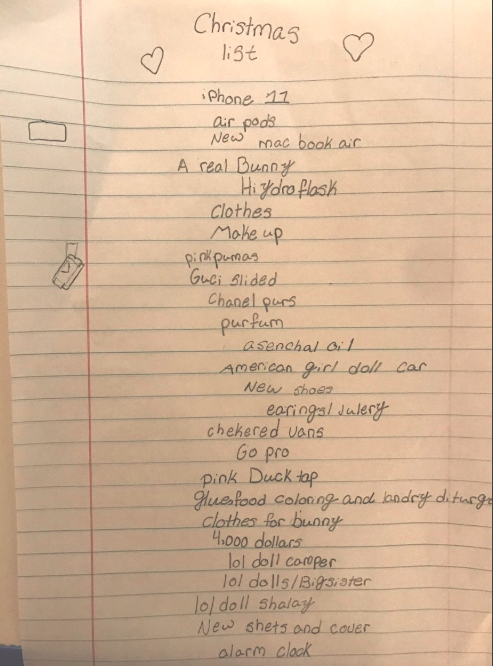 Christmas
list
iPhone 11
air pods
New mac book air
A real Bunny
Hiydroflask
Clothes
Make up
pink pumas
Guci slided
Chanel purs
purfum
asenchal oil
American girl doll car
New shoes
earings/Julery
chekered vans
Go pro
pink Duck tap
glues food coloring and landry diturge
clothes for bunny
4,000 dollars
lol doll camper
lol dolls/Bigsister
lol doll shalay
New shets and cover
alarm clock